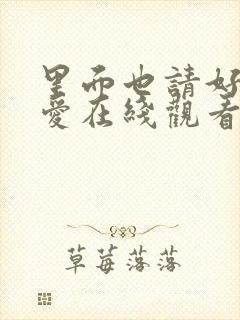 里而也請好
愛在綫觀看
草莓落落